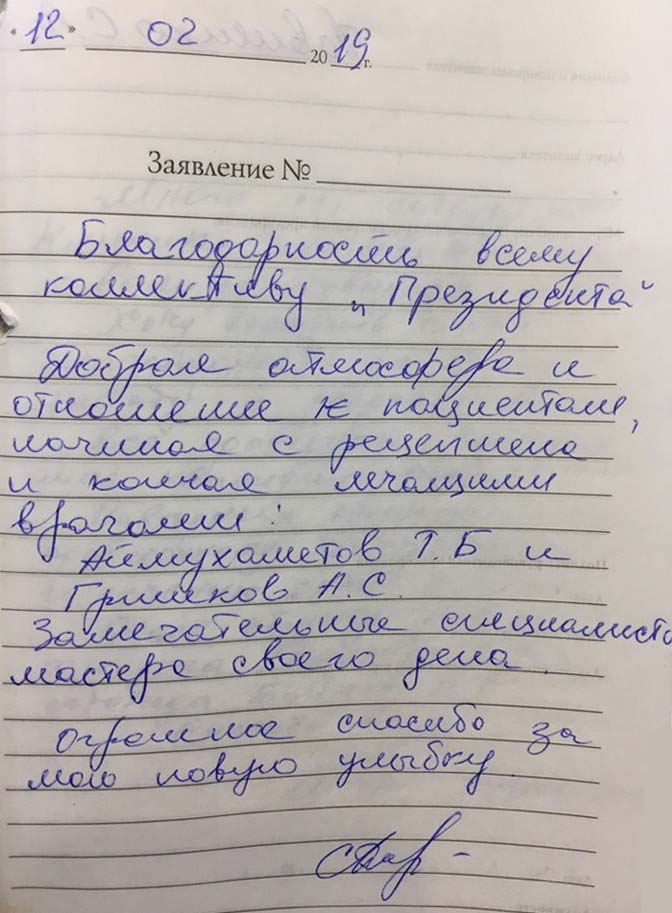 «12» 02 2019 г.
Заявление №
Благодарность всему
коллективу „Президента"
Добрая атмосфера и
отношение к пациентам,
начиная с рецепшена
и кончая лечащими
врачами:
Аймухаметов Т.Б и
Гришков А.С.
Замечательные специалисты
мастера своего дела.
Огромное спасибо за
мою новую улыбку